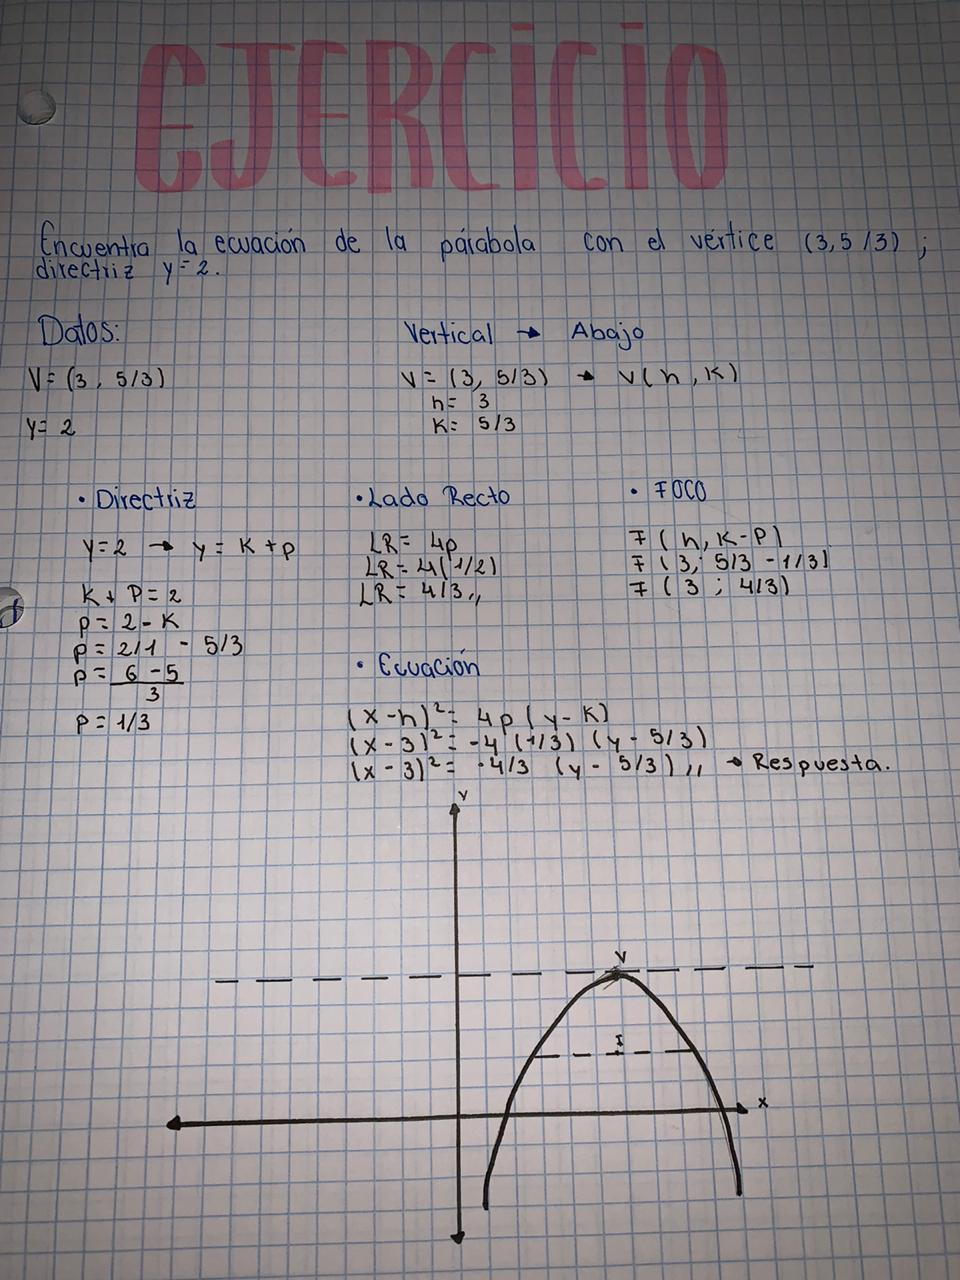 EJERCICIO
Encuentra la ecuación de la párabola con el vértice (3,5/3);
directriz y=2.
Datos:
V=(3, 5/3)
y=2
Vertical → Abajo
V=(3, 5/3) → V(h,K)
h= 3
K= 5/3
• Directriz
y=2 → y=K+p
K+P=2
p=2-K
p=2/1 - 5/3
p= 6-5
3
P=1/3
• Lado Recto
LR= 4p
LR=4(1/2)
LR= 4/3,,
• FOCO
F(h, K-P)
F(3; 5/3 -1/3)
F(3; 4/3)
• Ecuación
(x-h)²= 4p(y-K)
(x-3)²= -4(1/3) (y- 5/3)
(x-3)²= -4/3 (y- 5/3),, → Respuesta.
Y
V
F
X